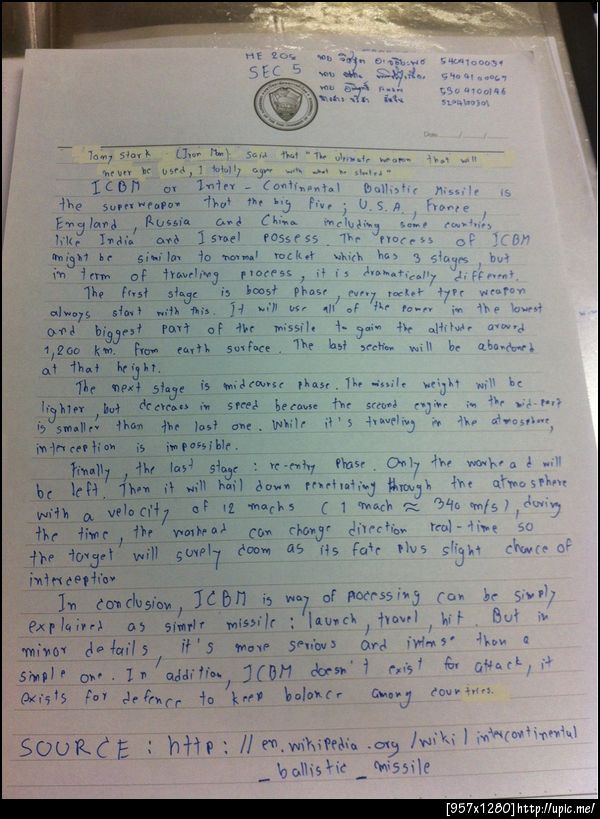 ME 205
SEC 5
นาย 5404100039
นาย 5404100067
นาย 5304100146
5204100301
Date
Tony Stark (Iron Man) said that "The ultimate weapon that will
never be used, I totally agree with what he stated"
ICBM or Inter-Continental Ballistic Missile is
the superweapon that the big five; U.S.A., France,
England, Russia and China including some countries
like India and Israel possess. The process of ICBM
might be similar to normal rocket which has 3 stages, but
in term of traveling process, it is dramatically different.
The first stage is boost phase, every rocket type weapon
always start with this. It will use all of the power in the lowest
and biggest part of the missile to gain the altitude around
1,200 km. from earth surface. The last section will be abandoned
at that height.
The next stage is midcourse phase. The missile weight will be
lighter, but decrease in speed because the second engine in the mid-part
is smaller than the last one. While it's traveling in the atmosphere,
interception is impossible.
Finally, the last stage : re-entry phase. Only the warhead will
be left. Then it will hail down penetrating through the atmosphere
with a velocity of 12 machs (1 mach ≈ 340 m/s), during
the time, the warhead can change direction real-time so
the target will surely doom as its fate plus slight chance of
interception
In conclusion, ICBM is way of processing can be simply
explained as simple missile : launch, travel, hit. But in
minor details, it's more serious and intense than a
simple one. In addition, ICBM doesn't exist for attack, it
exists for defence to keep balance among countries.
SOURCE : http://en.wikipedia.org/wiki/intercontinental
_ballistic_missile
[957x1280]http://upic.me/